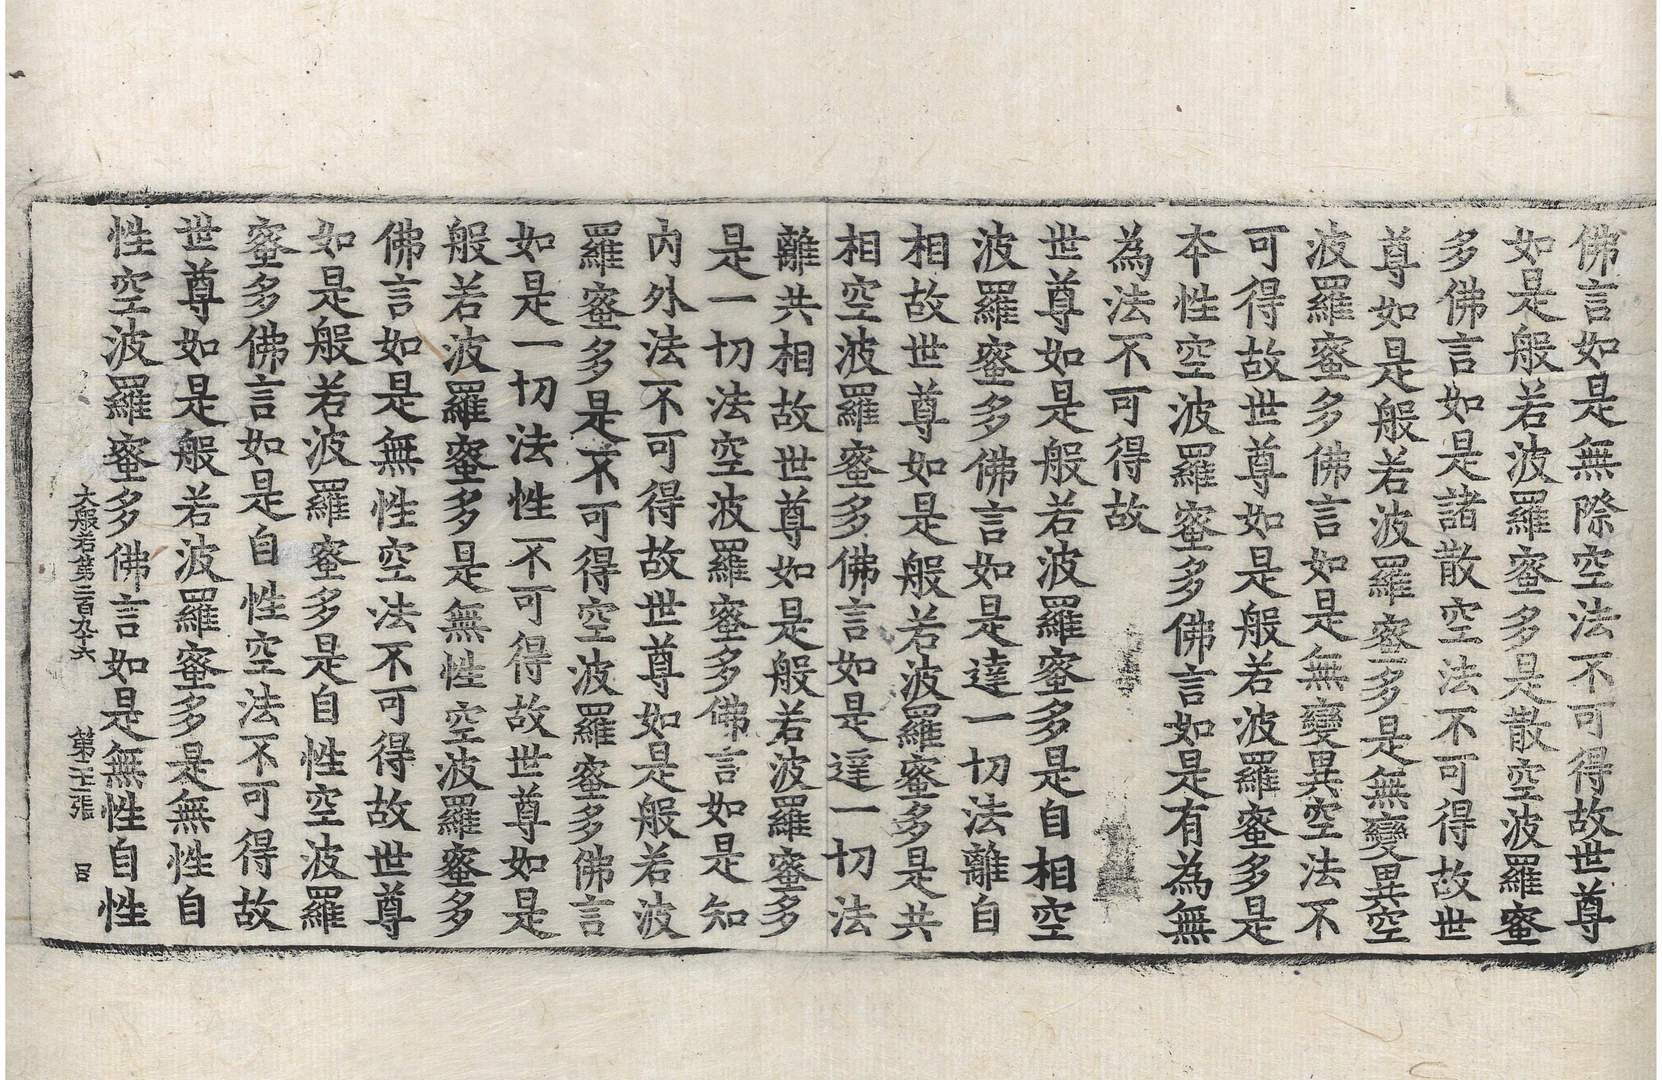 佛言如是無際空法不可得故世尊
如是般若波羅蜜多是散空波羅蜜
多佛言如是諸散空法不可得故世
尊如是般若波羅蜜多是無變異空
波羅蜜多佛言如是無變異空法不
可得故世尊如是般若波羅蜜多是
本性空波羅蜜多佛言如是有為無
為法不可得故
世尊如是般若波羅蜜多是自相空
波羅蜜多佛言如是達一切法離自
相故世尊如是般若波羅蜜多是共
相空波羅蜜多佛言如是達一切法
離共相故世尊如是般若波羅蜜多
是一切法空波羅蜜多佛言如是知
內外法不可得故世尊如是般若波
羅蜜多是不可得空波羅蜜多佛言
如是一切法性不可得故世尊如是
般若波羅蜜多是無性空波羅蜜多
佛言如是無性空法不可得故世尊
如是般若波羅蜜多是自性空波羅
蜜多佛言如是自性空法不可得故
世尊如是般若波羅蜜多是無性自
性空波羅蜜多佛言如是無性自性
大般若第二百九十六 第 張